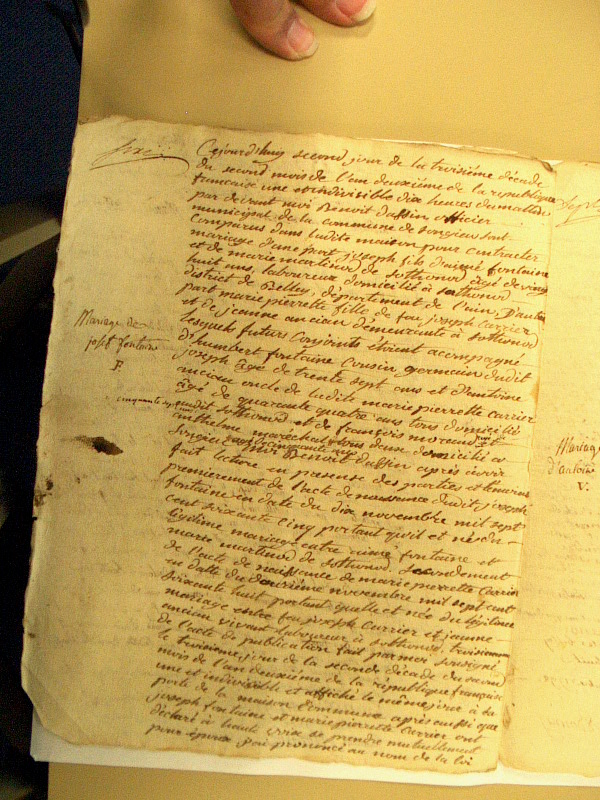 Cejourd'huy second jour de la troisiéme décade
du second mois de l'an deuxieme de la republique
francaise une et indivisible dix heures du matin
par devant moi Benoit dassin officier
municipal de la commune de songieu sont
comparus dans ladite maison pour contracter
mariage d'une part joseph fils d'aimé fontaine
et de marie martinod de sothonod agé de vingt
huit ans, laboureur domicilié à sothonod
district de Belley, département de l'ain, D'autre
part marie pierrette fille de feu joseph Carrier
et de jeanne ancian demeurante à sothonod
lesquels futurs conjoints étoient accompagné
d'humbert fontaine cousin germain dudit
joseph agé de trente sept ans et d'antoine
ancian oncle de ladite marie pierrette Carrier
agé de quarante quatre ans tous domiciliés
audit sothonod et de françois
anthelme maréchal tous deux domicilié a
songieu moi Benoit dassin après avoir
fait lecture en presense des parties et témoins
premierement de l'acte de naissance dudit joseph
fontaine en date du dix novembre mil sept
cent soixante cinq portant qu'il et né du
légitime mariage entre aimé fontaine et
marie martinod de sothonod. secondement
de l'acte de naissance de marie pierrette Carrier
en datte du novembre mil sept cent
soixante huit portant quelle et née du légitime
mariage entre feu joseph Carrier et jeanne
ancian vivant laboureur à sothonod, troisiemement
de l'acte de publication fait par moi soussigné
le troisieme jour de la seconde décade du second
mois de l'an deuxieme de la république française
une et indivisible et affiché le même jour à la
porte de la maison commune après aussi que
joseph fontaine et marie pierrette Carrier ont
déclaré à haute voix se prendre mutuellement
pour époux j'ai prononcé au nom de la loi
Mariage de
josept fontaine
F.
Mariage
d'antoine
V.